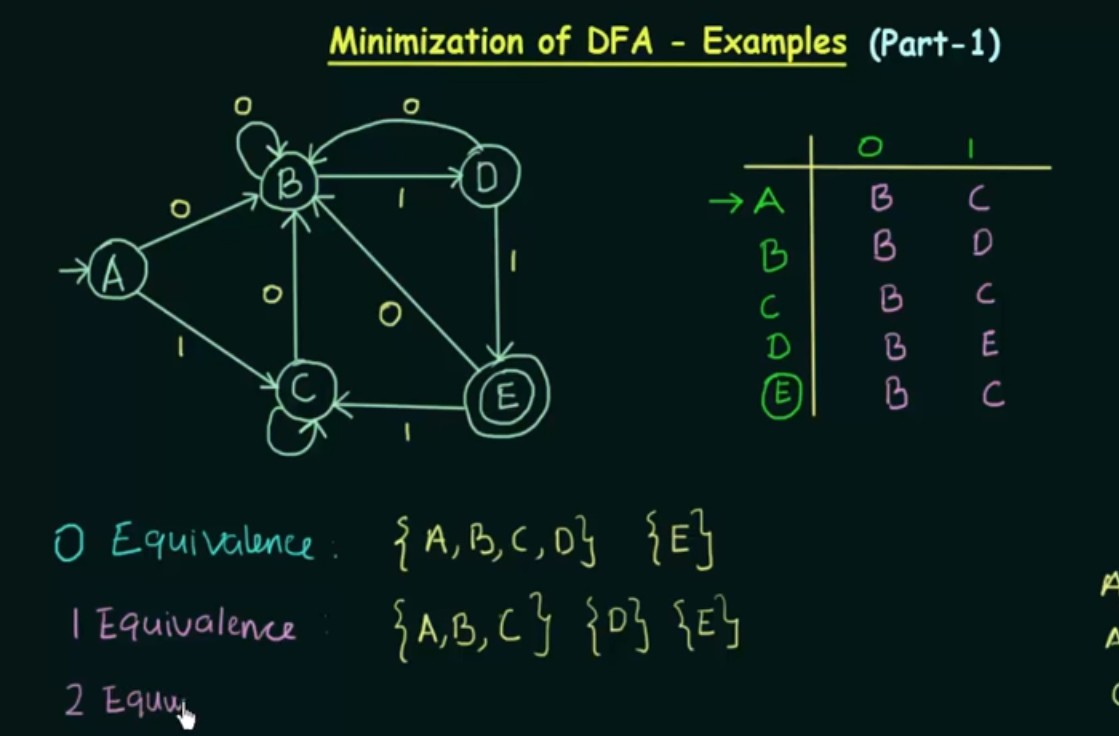 Minimization of DFA - Examples (Part-1)
0 0
B D
0 1
A 0 0 1
1 C E
1
0 1
→ A B C
B B D
C B C
D B E
E B C
0 Equivalence : {A, B, C, D} {E}
1 Equivalence : {A, B, C} {D} {E}
2 Equiv